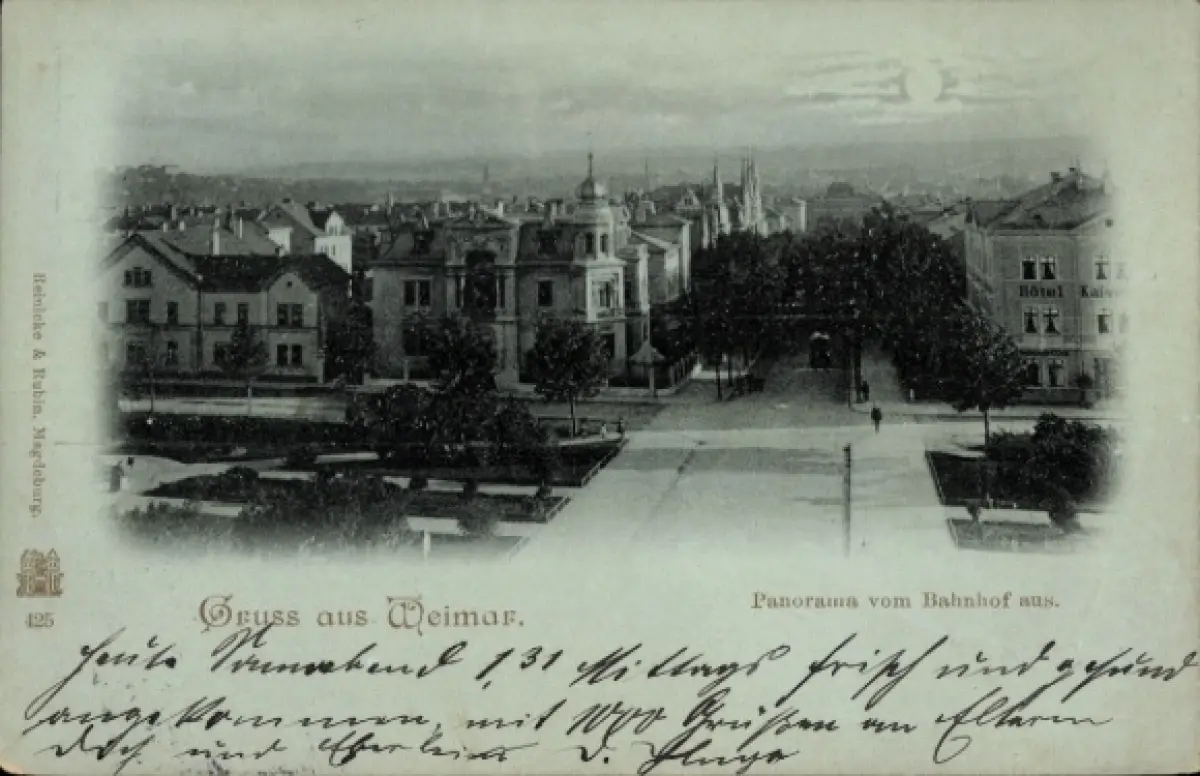 Hôtel Kaise
Reinicke & Rubin, Magdeburg.
425
Gruss aus Weimar.
Panorama vom Bahnhof aus.
Heute Sonnabend 1,31 Mittags frisch und gesund
angekommen, mit 1000 Grüßen an Eltern
Dich und Eberleins D. Hugo